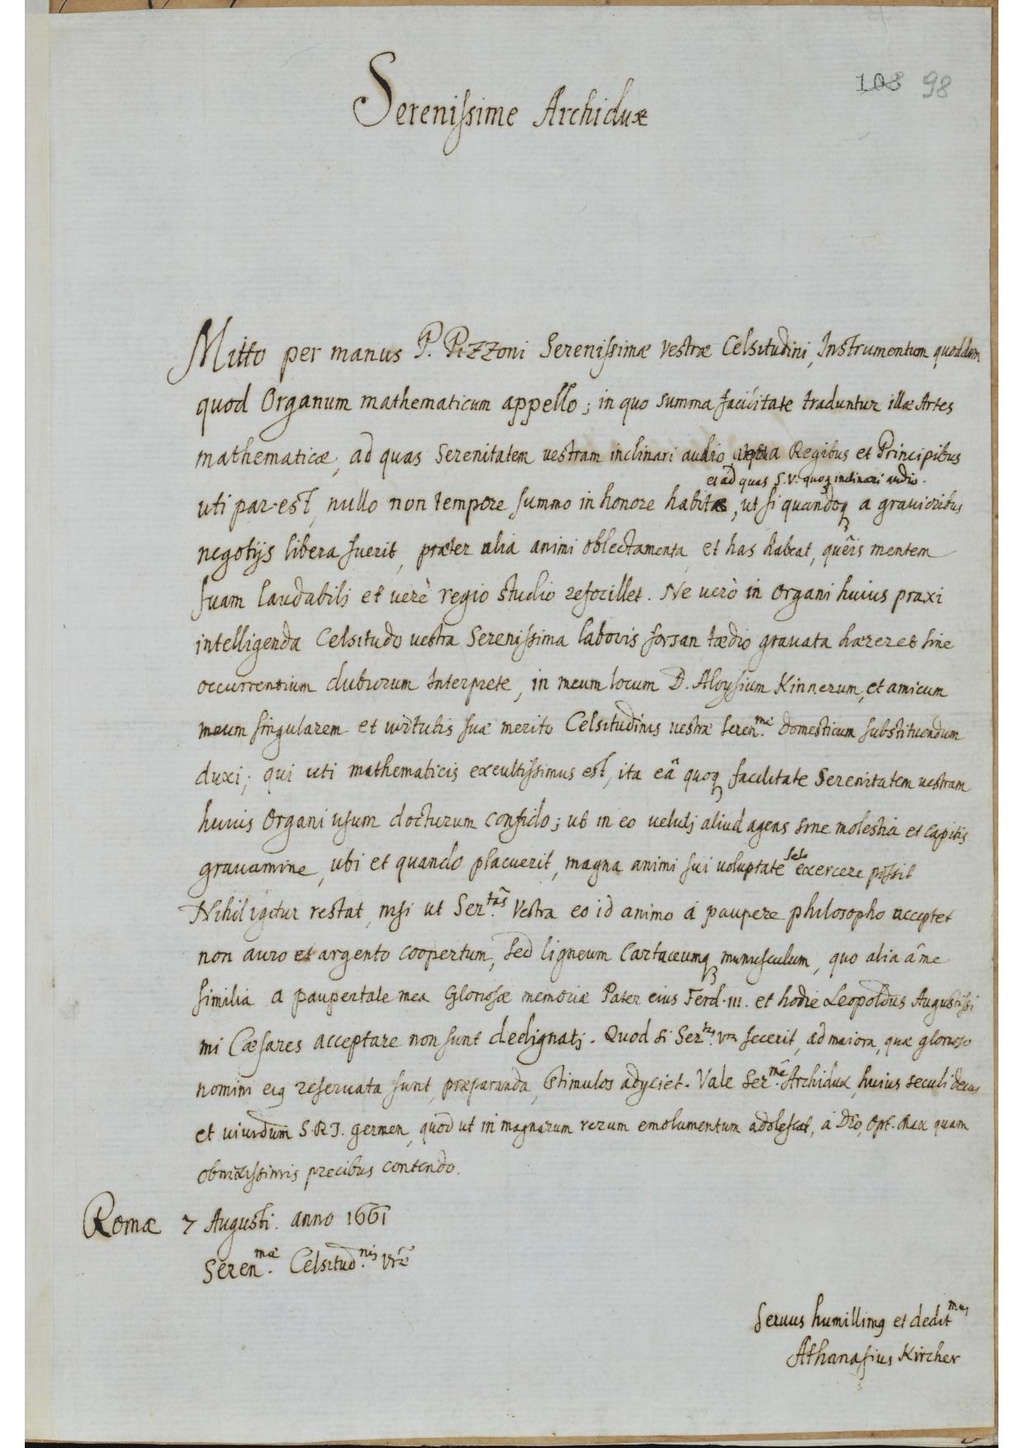 108 98
Serenissime Archidux
Mitto per manus P. Pizzoni Serenissimæ vestræ Celsitudini, Instrumentum quoddam
quod Organum mathematicum appello; in quo summa facilitate traduntur illæ Artes
mathematicæ, ad quas Serenitatem vestram inclinari audio a Regibus et Principibus
et ad quas S.V. quoq inclinari audio.
uti par est, nullo non tempore summo in honore habitæ, ut si quandoq a gravioribus
negotijs libera fuerit, præter alia animi oblectamenta et has habeat, queis mentem
suam laudabili et verè regio studio refocillet. Ne verò in Organi huius praxi
intelligenda Celsitudo vestra Serenissima laboris forsan tædio gravata hæreret sine
occurrentium dubiorum Interprete, in meum locum D. Aloysium Kinnerum, et amicum
meum singularem et virtutis suæ merito Celsitudinis vestræ Seren.mæ domesticum substituendum
duxi; qui uti mathematicis excultissimus est, ita eâ quoq facilitate Serenitatem vestram
huius Organi usum docturum confido; ut in eo veluti aliud agens sine molestia et capitis
gravamine, ubi et quando placuerit, magna animi sui voluptate sese exercere possit
Nihil igitur restat, nisi ut Ser.tas Vestra eo id animo à paupere philosopho acceptet
non auro et argento coopertum, sed ligneum cartaceumq munusculum, quo alia â me
similia a paupertate mea Gloriosæ memoriæ Pater eius Ferd. III. et hodie Leopoldus Augustissi
mi Cæsares acceptare non sunt dedignati. Quod si Ser.tas vra fecerit, ad maiora, quæ glorioso
nomini eiq reservata sunt, præparanda, stimulos adijciet. Vale Ser.me Archidux, huius seculi decus
et vivudum S.R.I. germen, quod ut in magnarum rerum emolumentum adolescat, à Deo, Opt. Max quam
obnixissimis precibus contendo.
Romæ 7 Augusti. anno 1661
Seren.mæ Celsitud.nis Vræ
Servus humillimq et dedit.mus
Athanasius Kircher